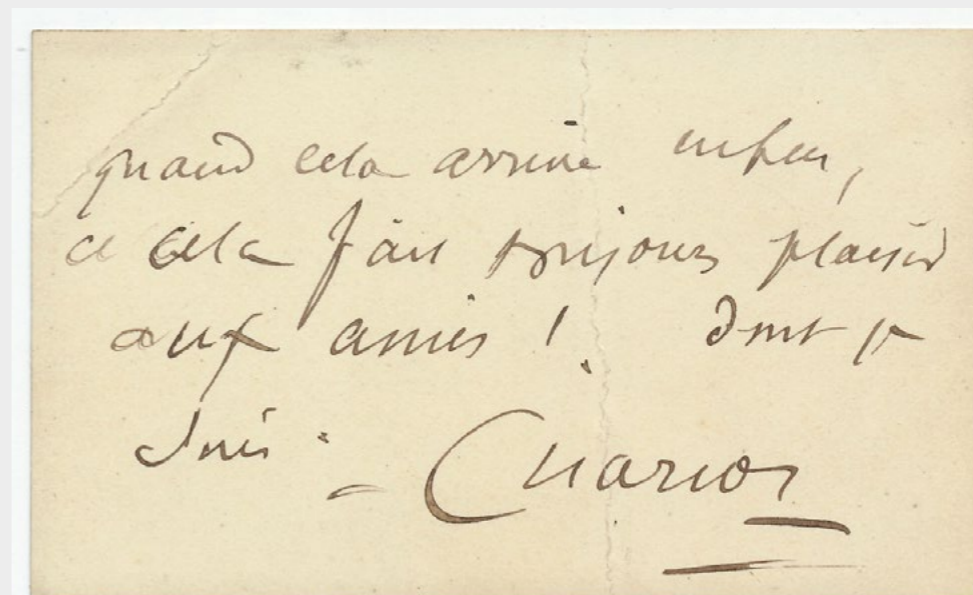 quand cela arrive enfin,
cela fait toujours plaisir
aux amis ! dont je
suis.